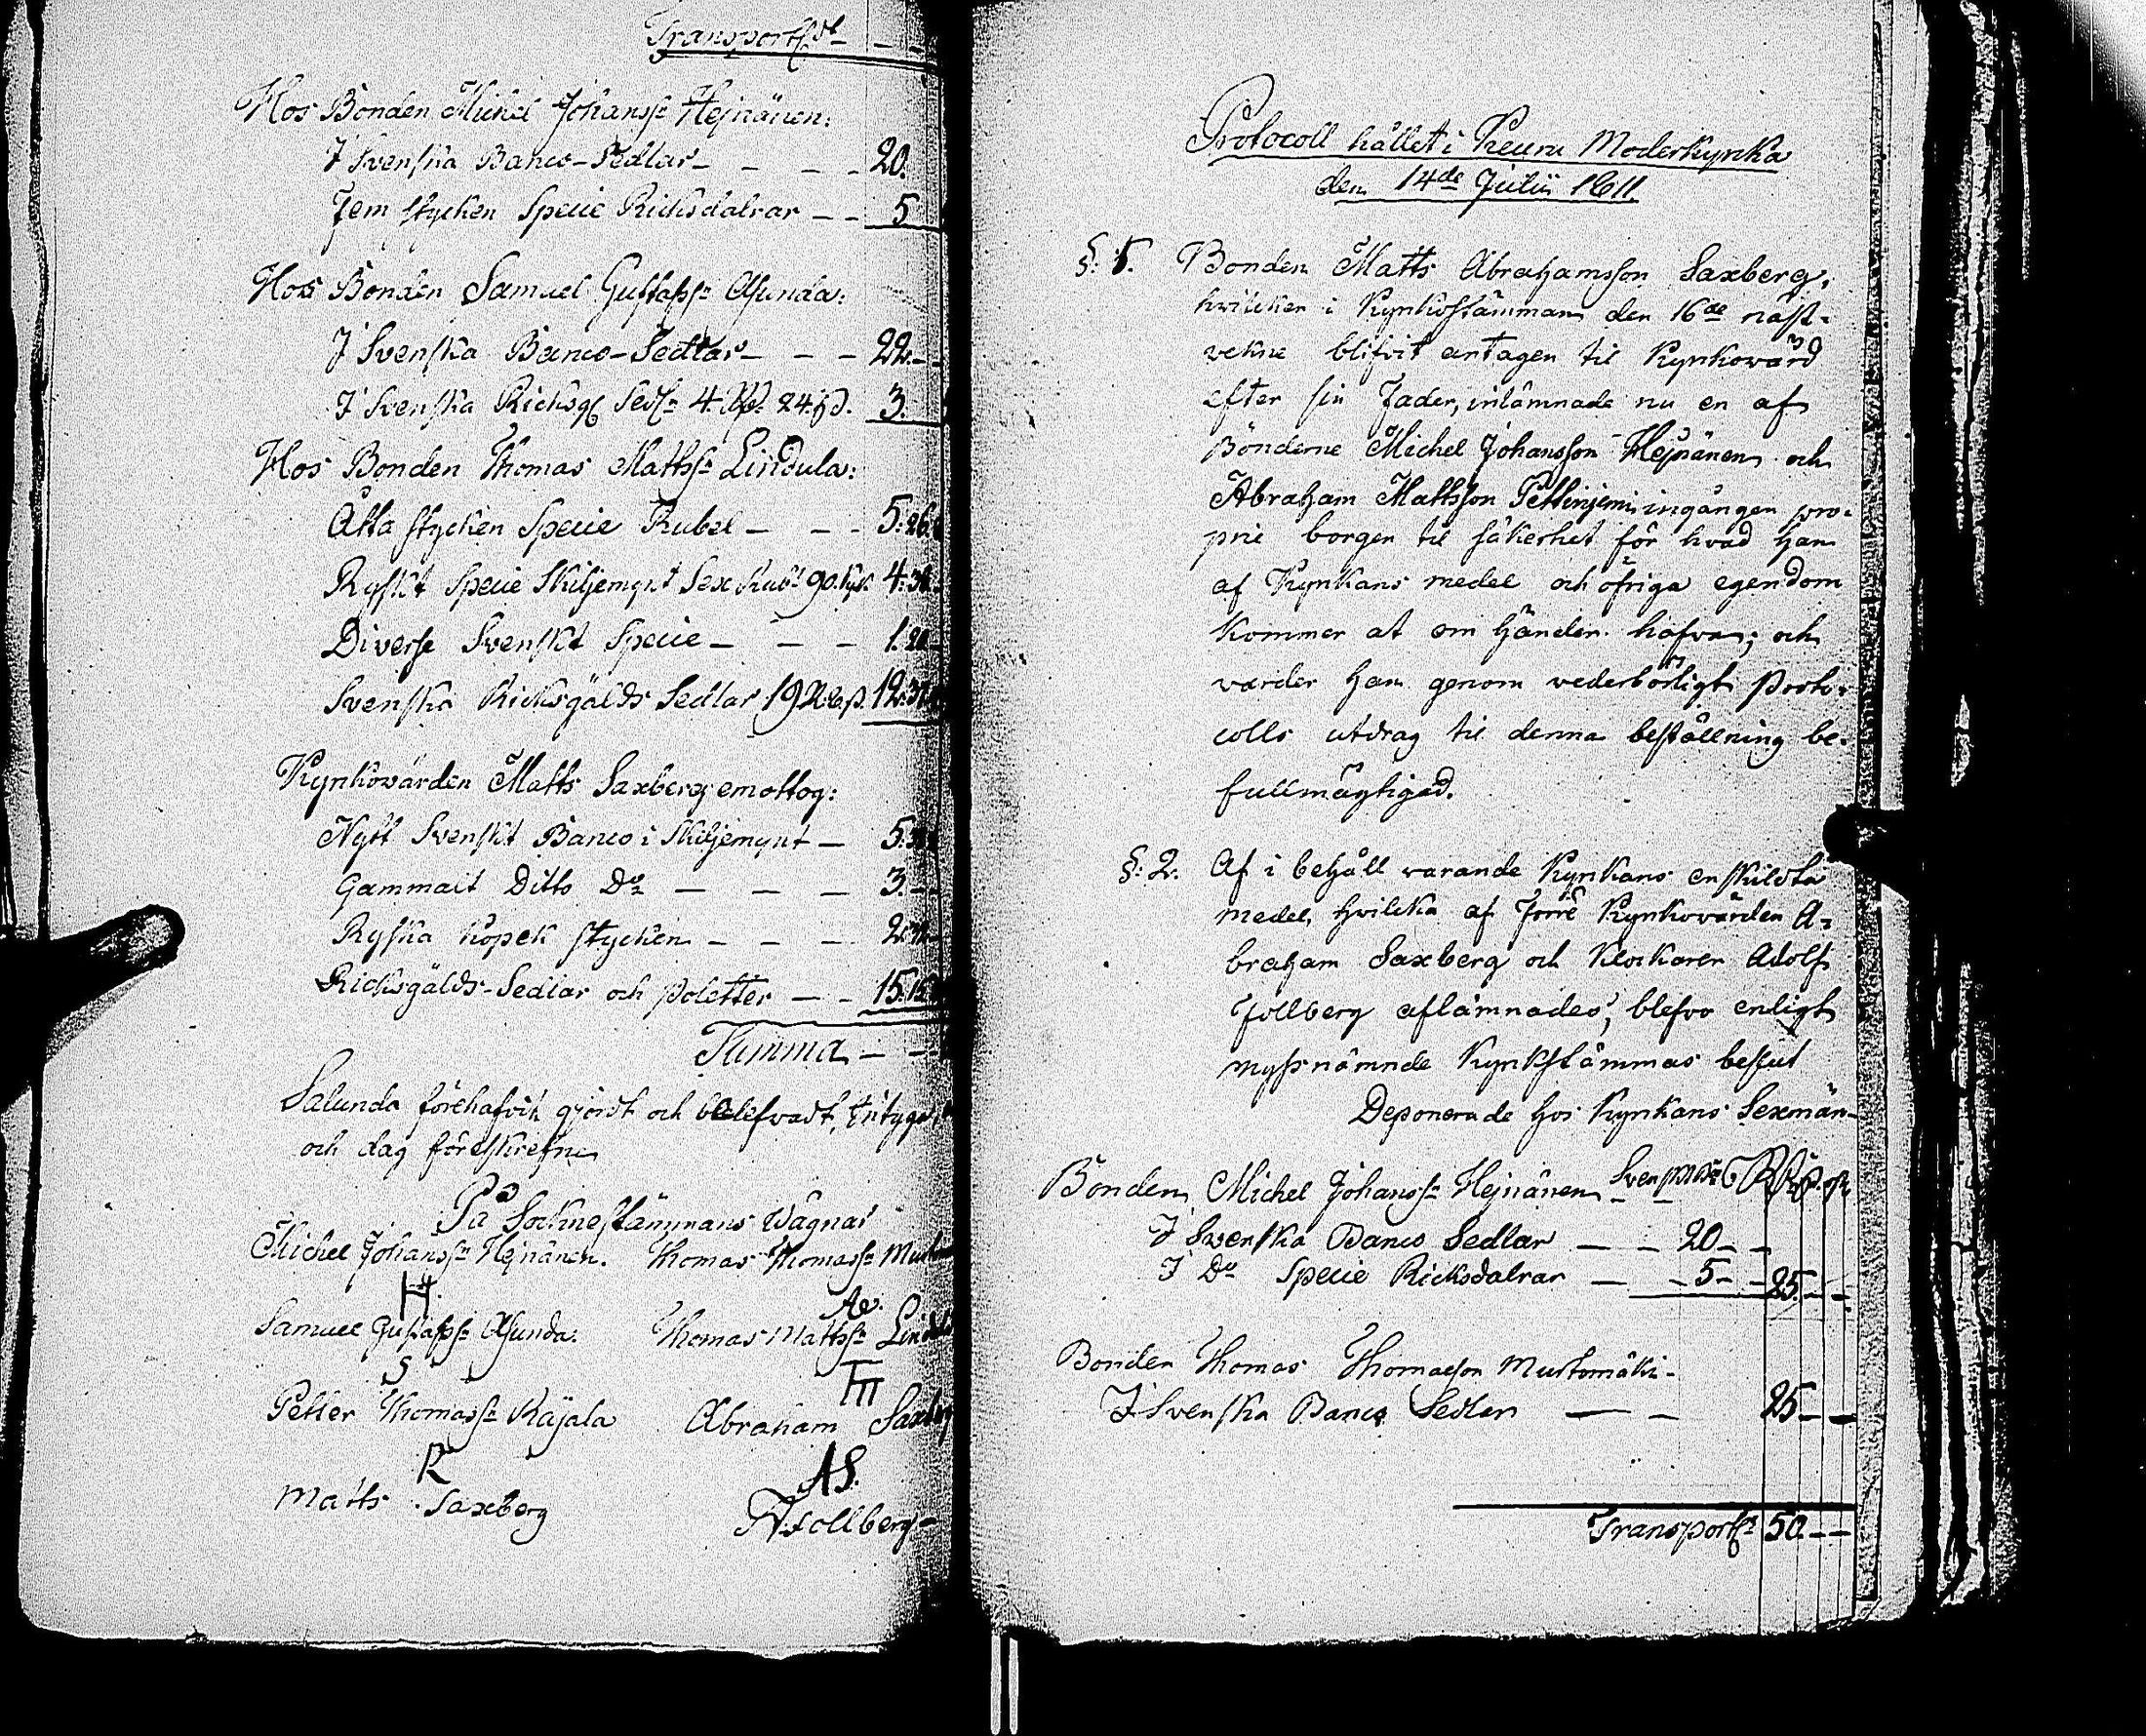 Transport
Hos Bonden Michel Johanss: Hejnänen:
I Svenska Banco-Sedlar — — — 20.
Fem stycken Specie Riksdalrar — — 5
Hos Bonden Samuel Gustafss: Asunda:
I Svenska Banco-Sedlar — — — 22.—
I Svenska Ricksg Sedl: 4. Rd. 24. 3.
Hos Bonden Thomas Mathss: Lindula:
Åtta stycken Specie Rubel — — — 5: 26.
Ryskt Specie Skiljemynt Sex Rub: 90. Kop. 4:
Diverse Svenskt Specie — — — 1.
Svenska Ricksgälds Sedlar 19 12:
Kyrkowärden Matts Saxberg emottog:
Nytt Svenskt Banco i Skiljemynt — 5:
Gammalt Ditto Do — — — 3.—
Ryska Kopek stycken — — — 2:
Ricksgälds-Sedlar och Poletter — — 15:
Summa — —
Salunda förehafvit gjordt och belefvadt, intygar
och dag föreskrefne
På Socknestämmans Wägnar
Michel Johanss: Hejnänen. Thomas Thomass:
H.
Samuel Gustafss: Asunda. Thomas Mattss:
S
Petter Thomass: Käjala Abraham
R AS.
Matts Saxberg Follberg
Protocoll hållet i Keuru Moderkyrka
den 14de Julii 1811.
§: 1. Bonden Matts Abrahamsson Saxberg,
hwilcken i Kyrkostämman den 16de näst-
vekne blifvit antagen til Kyrkowärd
efter sin Fader, inlämnade nu en af
Bönderne Michel Johansson Hejnänen och
Abraham Mattsson ingången pro-
prie borgen til säkerhet för hvad han
af Kyrkans medel och öfriga egendom
kommer at om händer hafva; och
warder han genom wederbörligt Proto-
colls utdrag til denna beställning be-
fullmägtigad.
§: 2. Af i behåll warande Kyrkans enskildta
medel, hvilcka af förre Kyrkowärden A-
braham Saxberg och Klockaren Adolf
Follberg aflämnades, blefvo enligt
nyssnämnde Kyrkstämmas beslut
Deponerade hos Kyrkans Sexmän
Bonden Michel Johanss: Hejnänen
I Swenska Banco Sedlar — — 20 — —
I Do Specie Ricksdalrar — — 5 — — 25. — —
Bonden Thomas Thomasson Murtomäki -
I Svenska Banco Sedlar — — 25 — —
Transport 50 — —